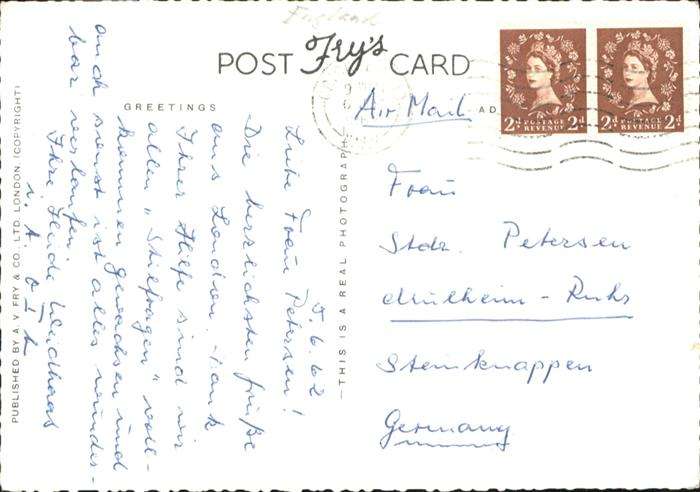 England
POST Fry's CARD
GREETINGS
AD
Air Mail
2d POSTAGE REVENUE 2d
2d POSTAGE REVENUE 2d
5.6.62
Liebe Frau Petersen!
Die herzlichsten Grüße
aus London. Dank
Ihrer Hilfe sind wir
allen "Stilfragen" voll-
kommen gewachsen und
auch sonst ist alles wunder-
bar verlaufen.
Ihre Heide
i. A. O I
Frau
Stdr. Petersen
Mülheim-Ruhr
Steinknappen
Germany
THIS IS A REAL PHOTOGRAPH
PUBLISHED BY A. V. FRY & CO., LTD. LONDON (COPYRIGHT)